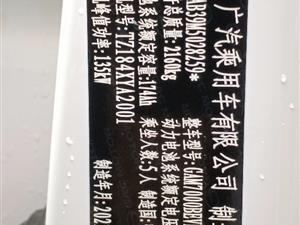 广汽乘用车有限公司 制
AB39M5028259*
整车型号:GAM7000BEV
许总质量:2160kg
动力电池系统额定电压
池系统额定容量:174Ah
乘坐人数:5人 制造国:
型号:TZ184XYA2001
机峰值功率:135kW
制造年月:202